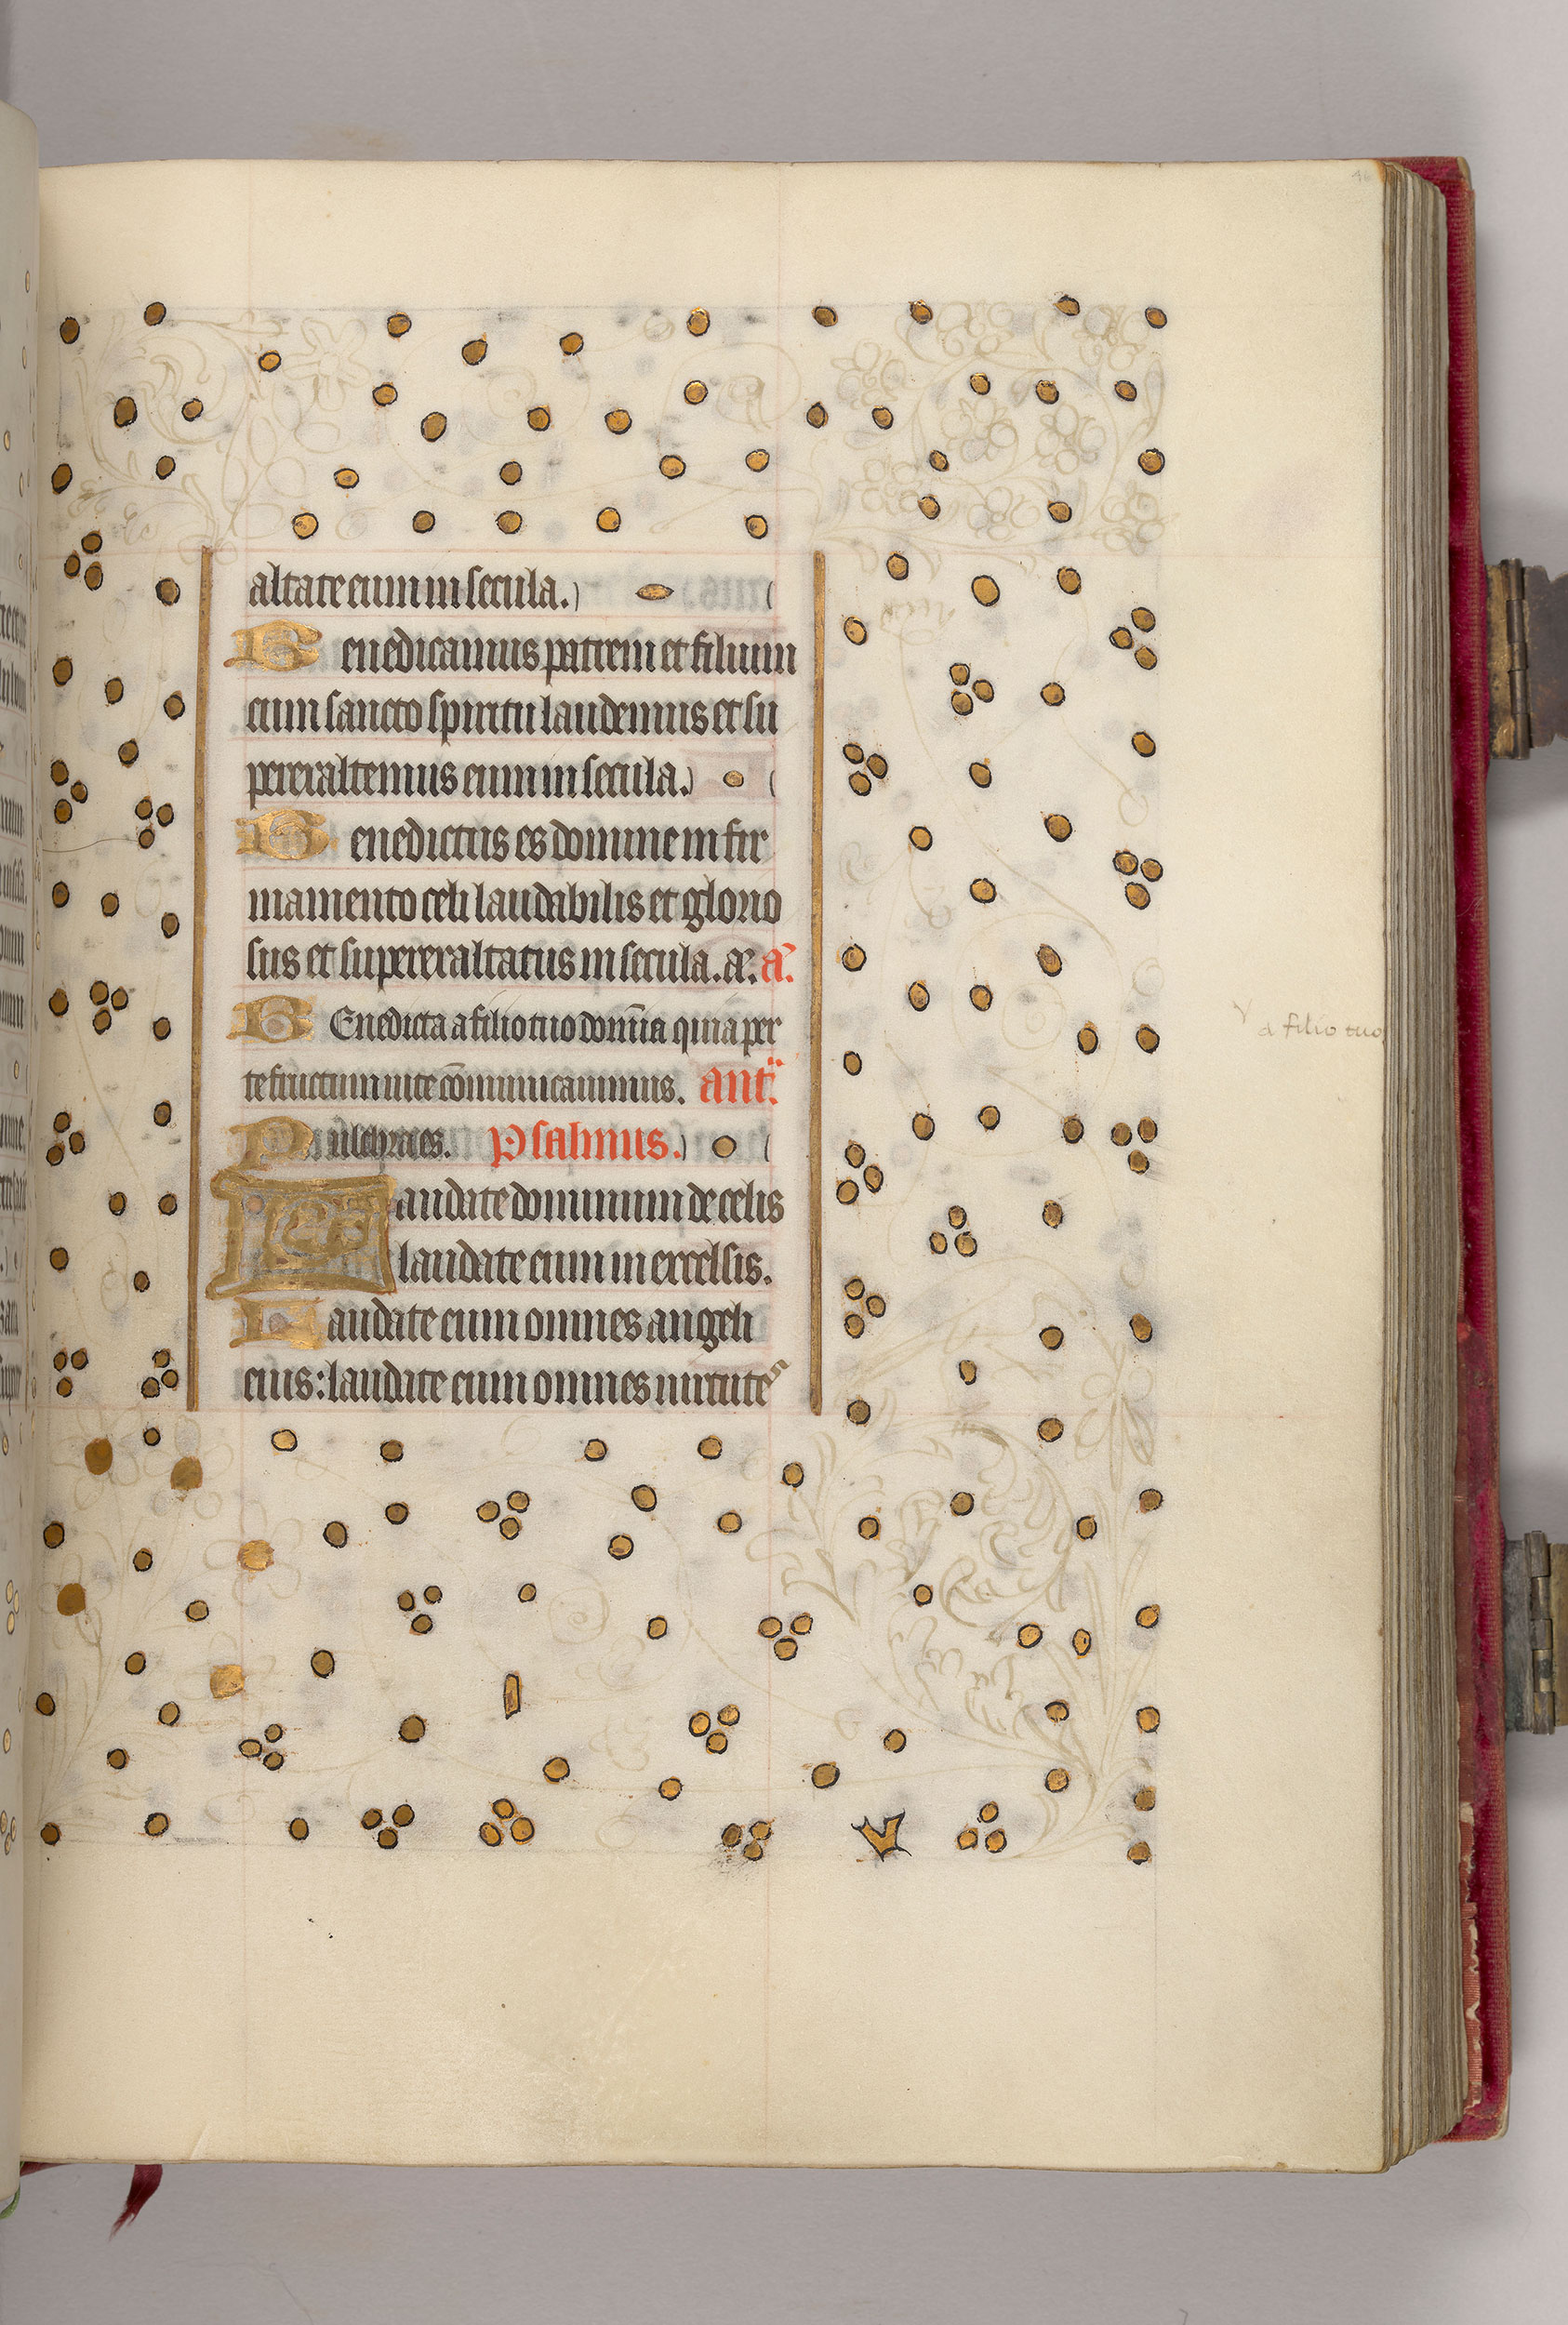 altate eum in secula.
Benedicamus patrem et filium
cum sancto spiritu laudemus et su
perexaltemus eum in secula.
Benedictus es domine in fir
mamento celi laudabilis et glorio
sus et superexaltatus in secula. a. a.
BEnedicta a filio tuo domina quia per
te fructum vite cōmunicavimus. ant.
Pulchra es. Psalmus.
Laudate dominum de celis
laudate eum in excelsis.
Laudate eum omnes angeli
eius: laudate eum omnes virtutes
a filio tuo